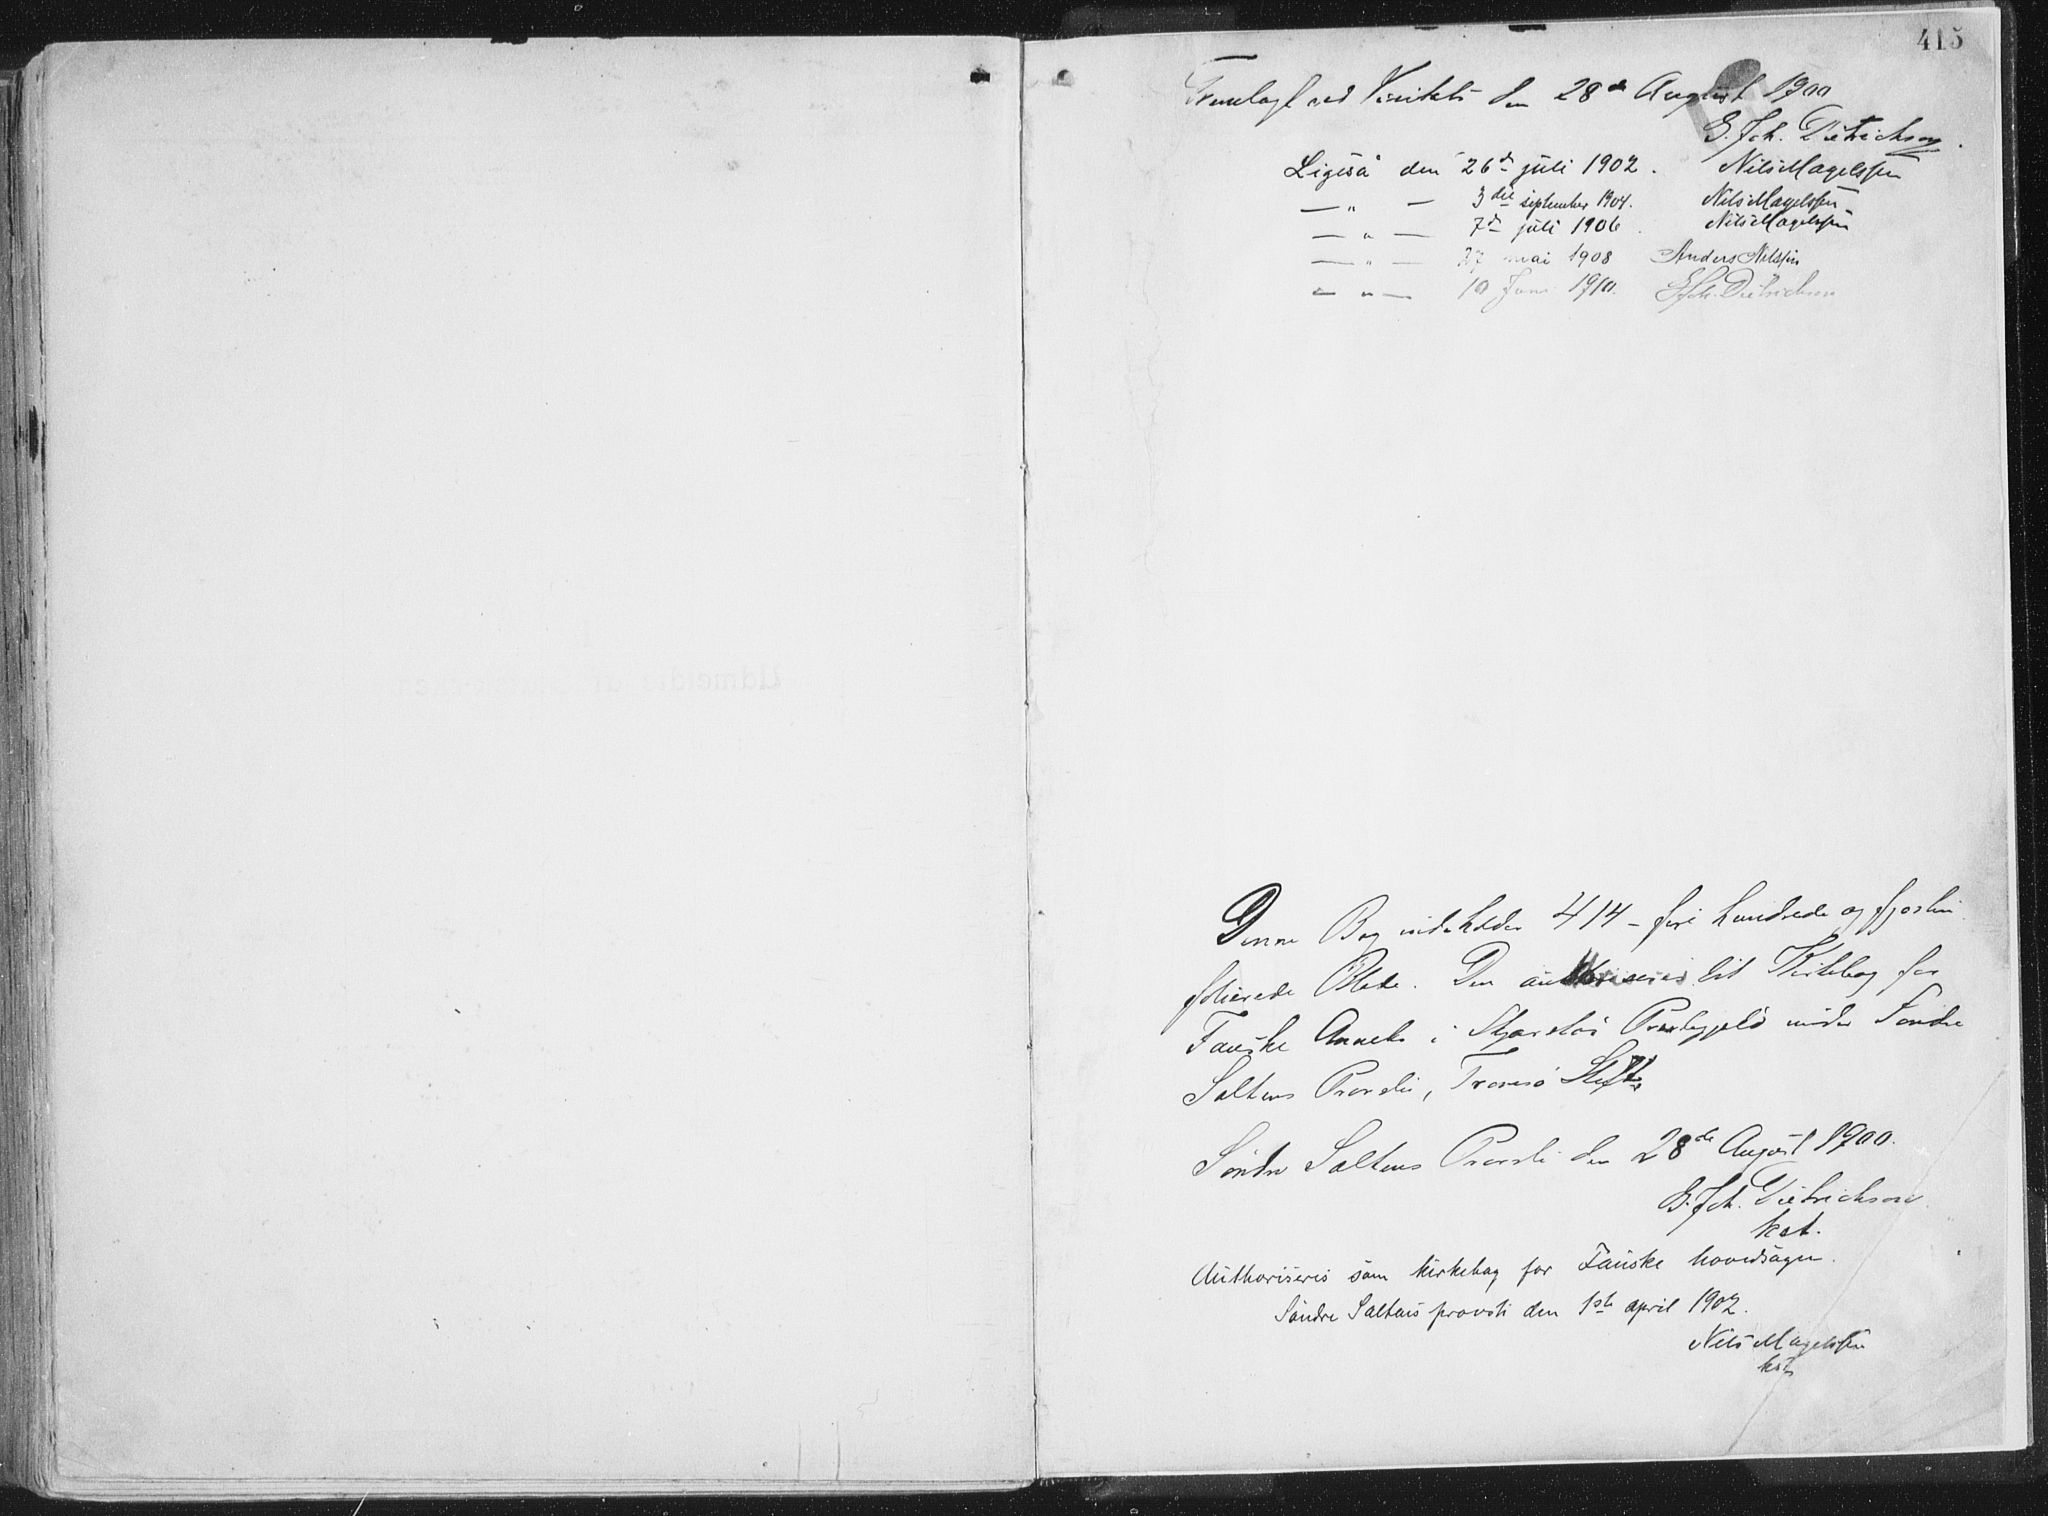 415
Fremlagt ved Visitats den 28de August 1900
G. Fch. Dietrichson.
Ligeså den 26de juli 1902. Nils Magelssen
— " — 3die september 1904. Nils Magelssen
— " — 7de juli 1906. Nils Magelssen
— " — 27 mai 1908 Anders Nilssen
— " — 10 Juni 1910. G Fch. Dietrichson
Denne Bog indeholder 414 – fire hundrede og fjorten
folierede Blade. Den authoriseres til Kirkebog for
Fauske Anneks i Skjerstad Præstegjeld under Søndre
Saltens Provsti, Tromsø Stift
Søndre Saltens Provsti den 28de August 1900.
G. Fch. Dietrichson
kst.
Authoriseres som kirkebog for Fauske hovedsogn.
Søndre Saltens provsti den 1ste april 1902.
Nils Magelssen
kst.